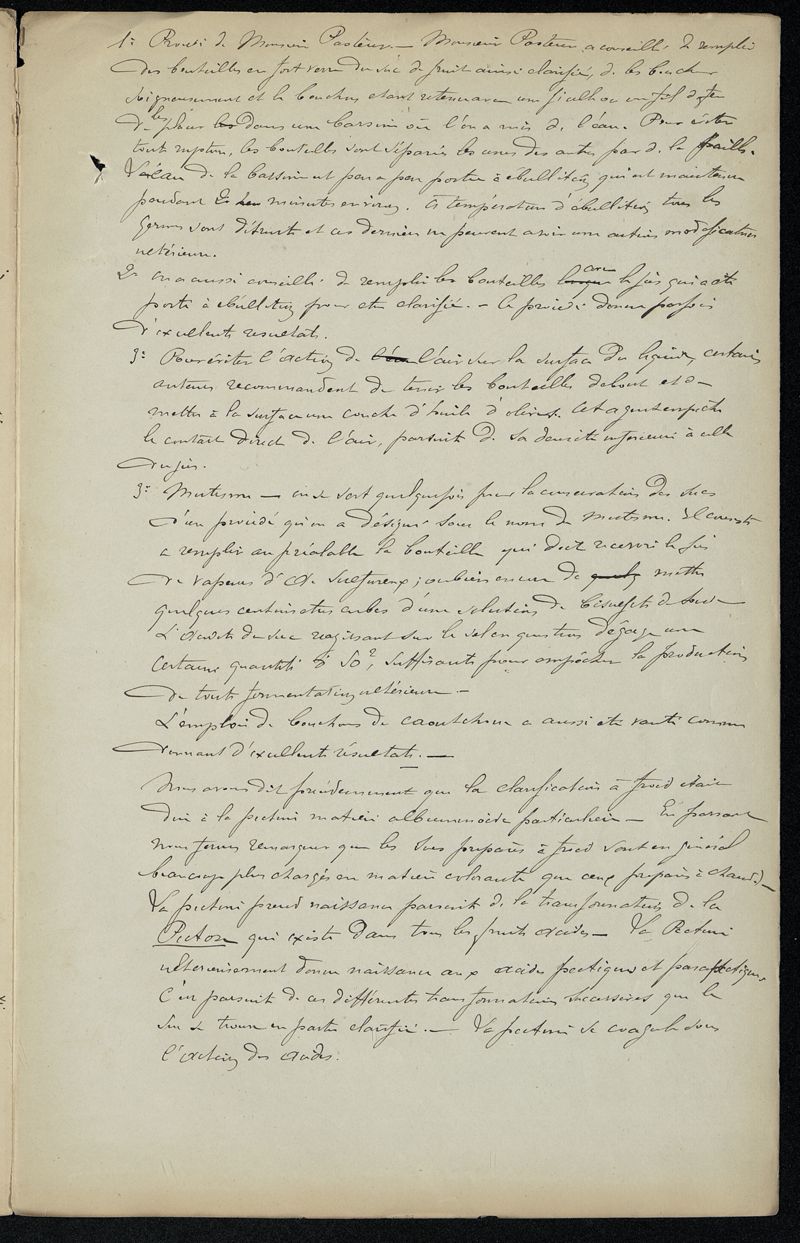 1° Procédé de Monsieur Pasteur. — Monsieur Pasteur a conseillé de remplir
des bouteilles en fort verre du suc de fruit ainsi clarifié, de les boucher
soigneusement et le bouchon étant retenu avec une ficelle ou un fil de fer
de les placer dans une bassine où l'on a mis de l'eau. Pour éviter
toute rupture, les bouteilles sont séparées les unes des autres par de la paille.
L'eau de la bassine est peu à peu portée à ébullition, qui est maintenue
pendant minutes environ. A température d'ébullition tous les
germes sont détruits et ces derniers ne peuvent avoir une action modificatrice
ultérieure.
2° on a aussi conseillé de remplir les bouteilles avec le jus qui a été
porté à ébullition pour être clarifié. — Ce procédé donne parfois
d'excellents résultats.
3° Pour éviter l'action de l'air sur la surface du liquide, certains
auteurs recommandent de tenir les bouteilles debout et de
mettre à la surface une couche d'huile d'olives. Cet agent empêche
le contact direct de l'air, par suite de sa densité inférieure à celle
du jus.
3° Mutisme — on se sert quelquefois pour la conservation des sucs
d'un procédé qu'on a désigné sous le nom de Mutisme. Il consiste
à remplir au préalable la bouteille qui doit recevoir le jus
de vapeurs d'ac. sulfureux; ou bien encore de mettre
quelques centimètres cubes d'une solution de bisulfite de soude
L'acidité du suc réagissant sur le sel en question dégage une
certaine quantité d SO², suffisante pour empêcher la production
de toute fermentation ultérieure. —
L'emploi de bouchons de caoutchouc a aussi été vanté comme
donnant d'excellents résultats. —
Nous avons dit précédemment que la clarification à froid était
due à la pectine matière albuminoïde particulière — En passant
nous ferons remarquer que les sucs préparés à froid sont en général
beaucoup plus chargés en matière colorante que ceux préparés à chaud. —
La pectine prend naissance par suite de la transformation de la
Pectose qui existe dans tous les fruits acides — La Pectine
ultérieurement donne naissance aux acides pectiques et parapectiques
C'est par suite de ces différentes transformations successives que le
suc se trouve en partie clarifié. — La pectine se coagule sous
l'action des acides.